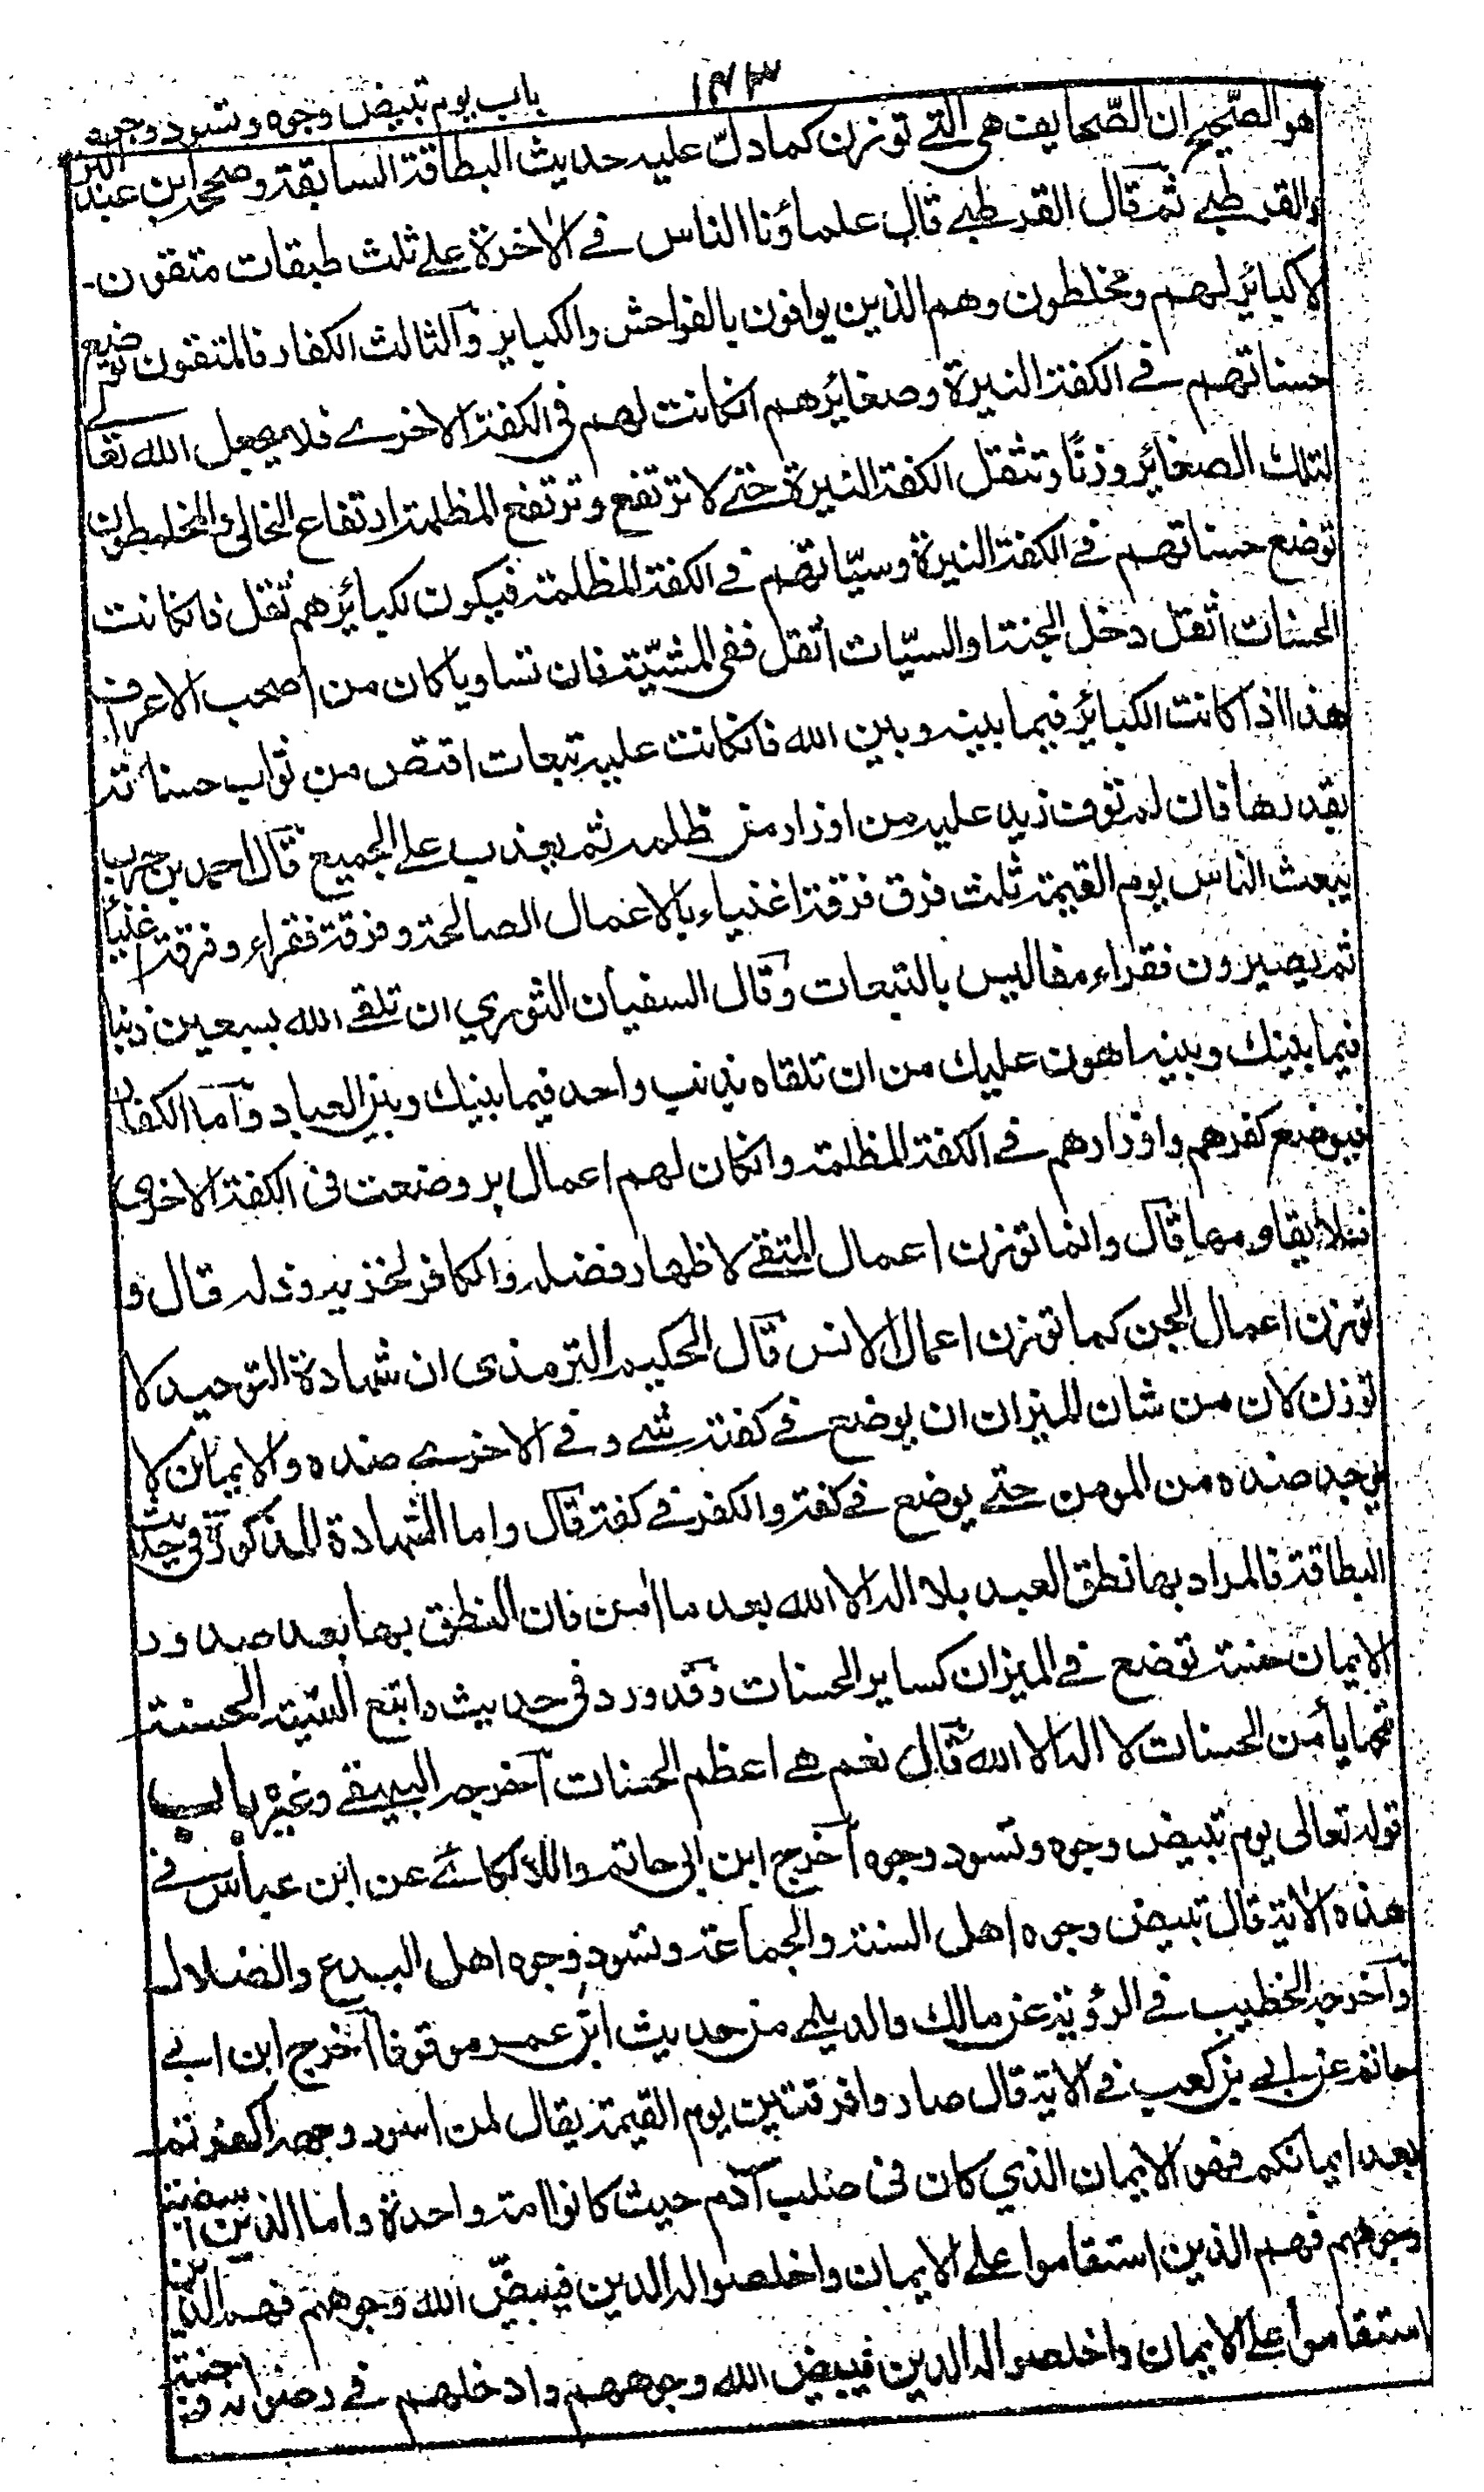 ١٤٣
باب يوم تبيض وجوه وتسود وجوه
هو الصّحيح ان الصّحايف هى التے توزن كما دلّ عليه حديث البطاقة السابقة وصححه ابن عبد البر
والقرطبے ثم قال القرطبے قال علماؤنا الناس فے الاخرة علے ثلث طبقات متقون
لا كبائر لهم ومخلطون وهم الذين يوافون بالفواحش والكبايز والثالث الكفار فالمتقون توضع
حسناتهم فے الكفة النيرة وصغائرهم انكانت لهم فى الكفة الاخرے فلا يجعل الله تعالے
لتلك الصغائر وزنًا وتثقل الكفة النيرة حتے لا ترتفع وترتفع المظلمة ارتفاع الخالى والمخلطون
توضع حسناتهم فے الكفة النيرة وسيّاتهم فے الكفة المظلمة فيكون لكبائرهم ثقل فانكانت
الحسنات اثقل دخل الجنة او السيّات اثقل ففى المشيّة فان تساويا كان من اصحب الاعراف
هذا اذا كانت الكبائر فيما بينه وبين الله فانكانت عليه تبعات اقتص من ثواب حسناته
بقدرها فان لم توف زيد عليه من اوزار من ظلمه ثم يعذب علے الجميع قال احمد بن حرب
يبعث الناس يوم القيمة ثلث فرق فرقة اغنياء بالاعمال الصالحة وفرقة فقراء وفرقة اغنياء
ثم يصيرون فقراء مفاليس بالتبعات وقال السفيان الثوري ان تلقے الله بسبعين ذنبا
فيما بينك وبينه اهون عليك من ان تلقاه بذنب واحد فيما بينك وبين العباد واما الكفار
فيوضع كفرهم واوزارهم فے الكفة المظلمة وانكان لهم اعمال بر وضعت فى الكفة الاخرى
فلا يقاومها قال وانما توزن اعمال المتقے لاظهار فضله والكافر لخزيه وذله قال و
توزن اعمال الجن كما توزن اعمال الانس قال الحكيم الترمذى ان شهادة التوحيد لا
توزن لان من شان الميزان ان يوضع فے كفة شے وفے الاخرے ضده والايمان لا
يوجد ضده من المومن حتے يوضع فے كفة والكفر فے كفة قال واما الشهادة المذكورة فى حديث
البطاقة فالمراد بها نطق العبد بلا اله الا الله بعد ما امن فان النطق بها بعد صدور
الايمان حسنة توضع فے الميزان كساير الحسنات وقد ورد فى حديث واتبع السّيّة الحسنة
تمحها يا أمن الحسنات لا اله الا الله قال نعم هے اعظم الحسنات اخرجه البيهقے وغيره باب
قوله تعالى يوم تبيض وجوه وتسود وجوه اخرج ابن ابى حاتم واللالكائے عن ابن عباس فے
هذه الاية قال تبيض وجوه اهل السنة والجماعة وتسود وجوه اهل البدع والضلال
واخرجه الخطيب فے الرؤية عن مالك والديلمے من حديث ابن عمر موقوفا اخرج ابن ابے
حاتم عن ابے بن كعب فے الاية قال صاروا فرقتين يوم القيمة يقال لمن اسود وجهه اكفرتم
بعد ايمانكم فهو الايمان الذي كان فى صلب آدم حيث كانوا امة واحدة واما الذين ابيضت
وجوههم فهم الذين استقاموا علے الايمان واخلصوا له الدين فبيضّ الله وجوههم فهم الذين
استقاموا علے الايمان واخلصوا له الدين فبيض الله وجوههم وادخلهم فے رضوانه وجنته